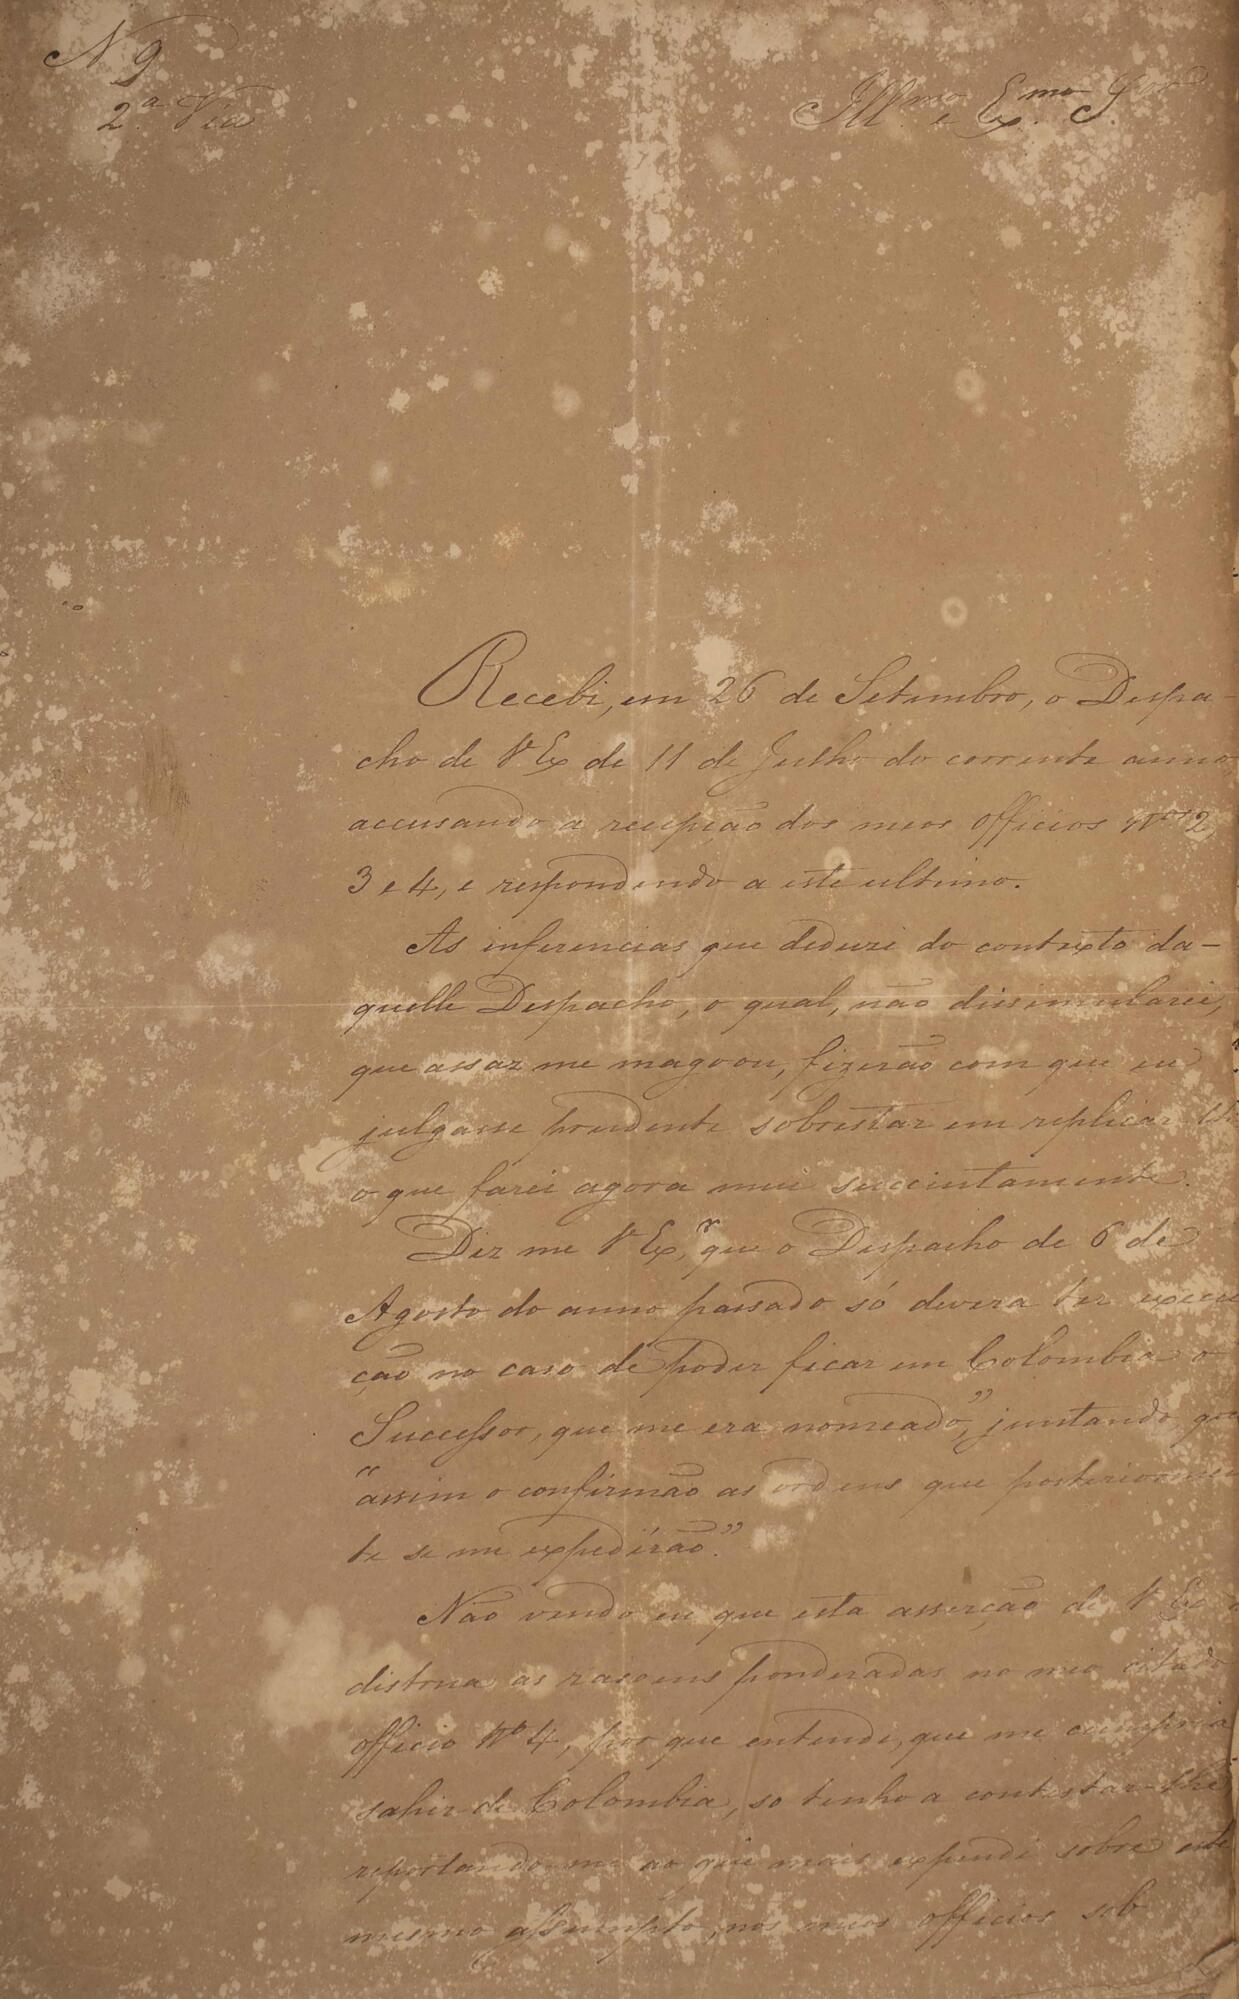 N 9
2.ª Via
Ill.mo e Ex.mo S.or
Recebi, em 26 de Setembro, o Despa-
cho de V Ex de 11 de Julho do corrente anno
accusando a recepção dos meos officios Nos 2,
3 e 4, e respondendo a este ultimo.
As inferencias que deduzi do contexto da-
quelle Despacho, o qual, não dissimularei,
que assaz me magoou, fizerão com que eu
julgasse prudente sobrestar em replicar
o que farei agora mui succintamente.
Diz me V Ex,ª que o Despacho de 6 de
Agosto do anno passado só devera ter execu
ção no caso de poder ficar em Colombia o
Successor, que me era nomeado", juntando que
"assim o confirmão as ordens que posteriormen
te se me expedirão."
Não vendo eu que esta asserção de V Ex
distrua as rasoens ponderadas no meo citado
officio Nº 4, por que entendi, que me cumpria
sahir de Colombia, so tenho a contestar-lhe
reportando-me ao que mais expendi sobre este
mesmo assumpto, nos meos officios sob